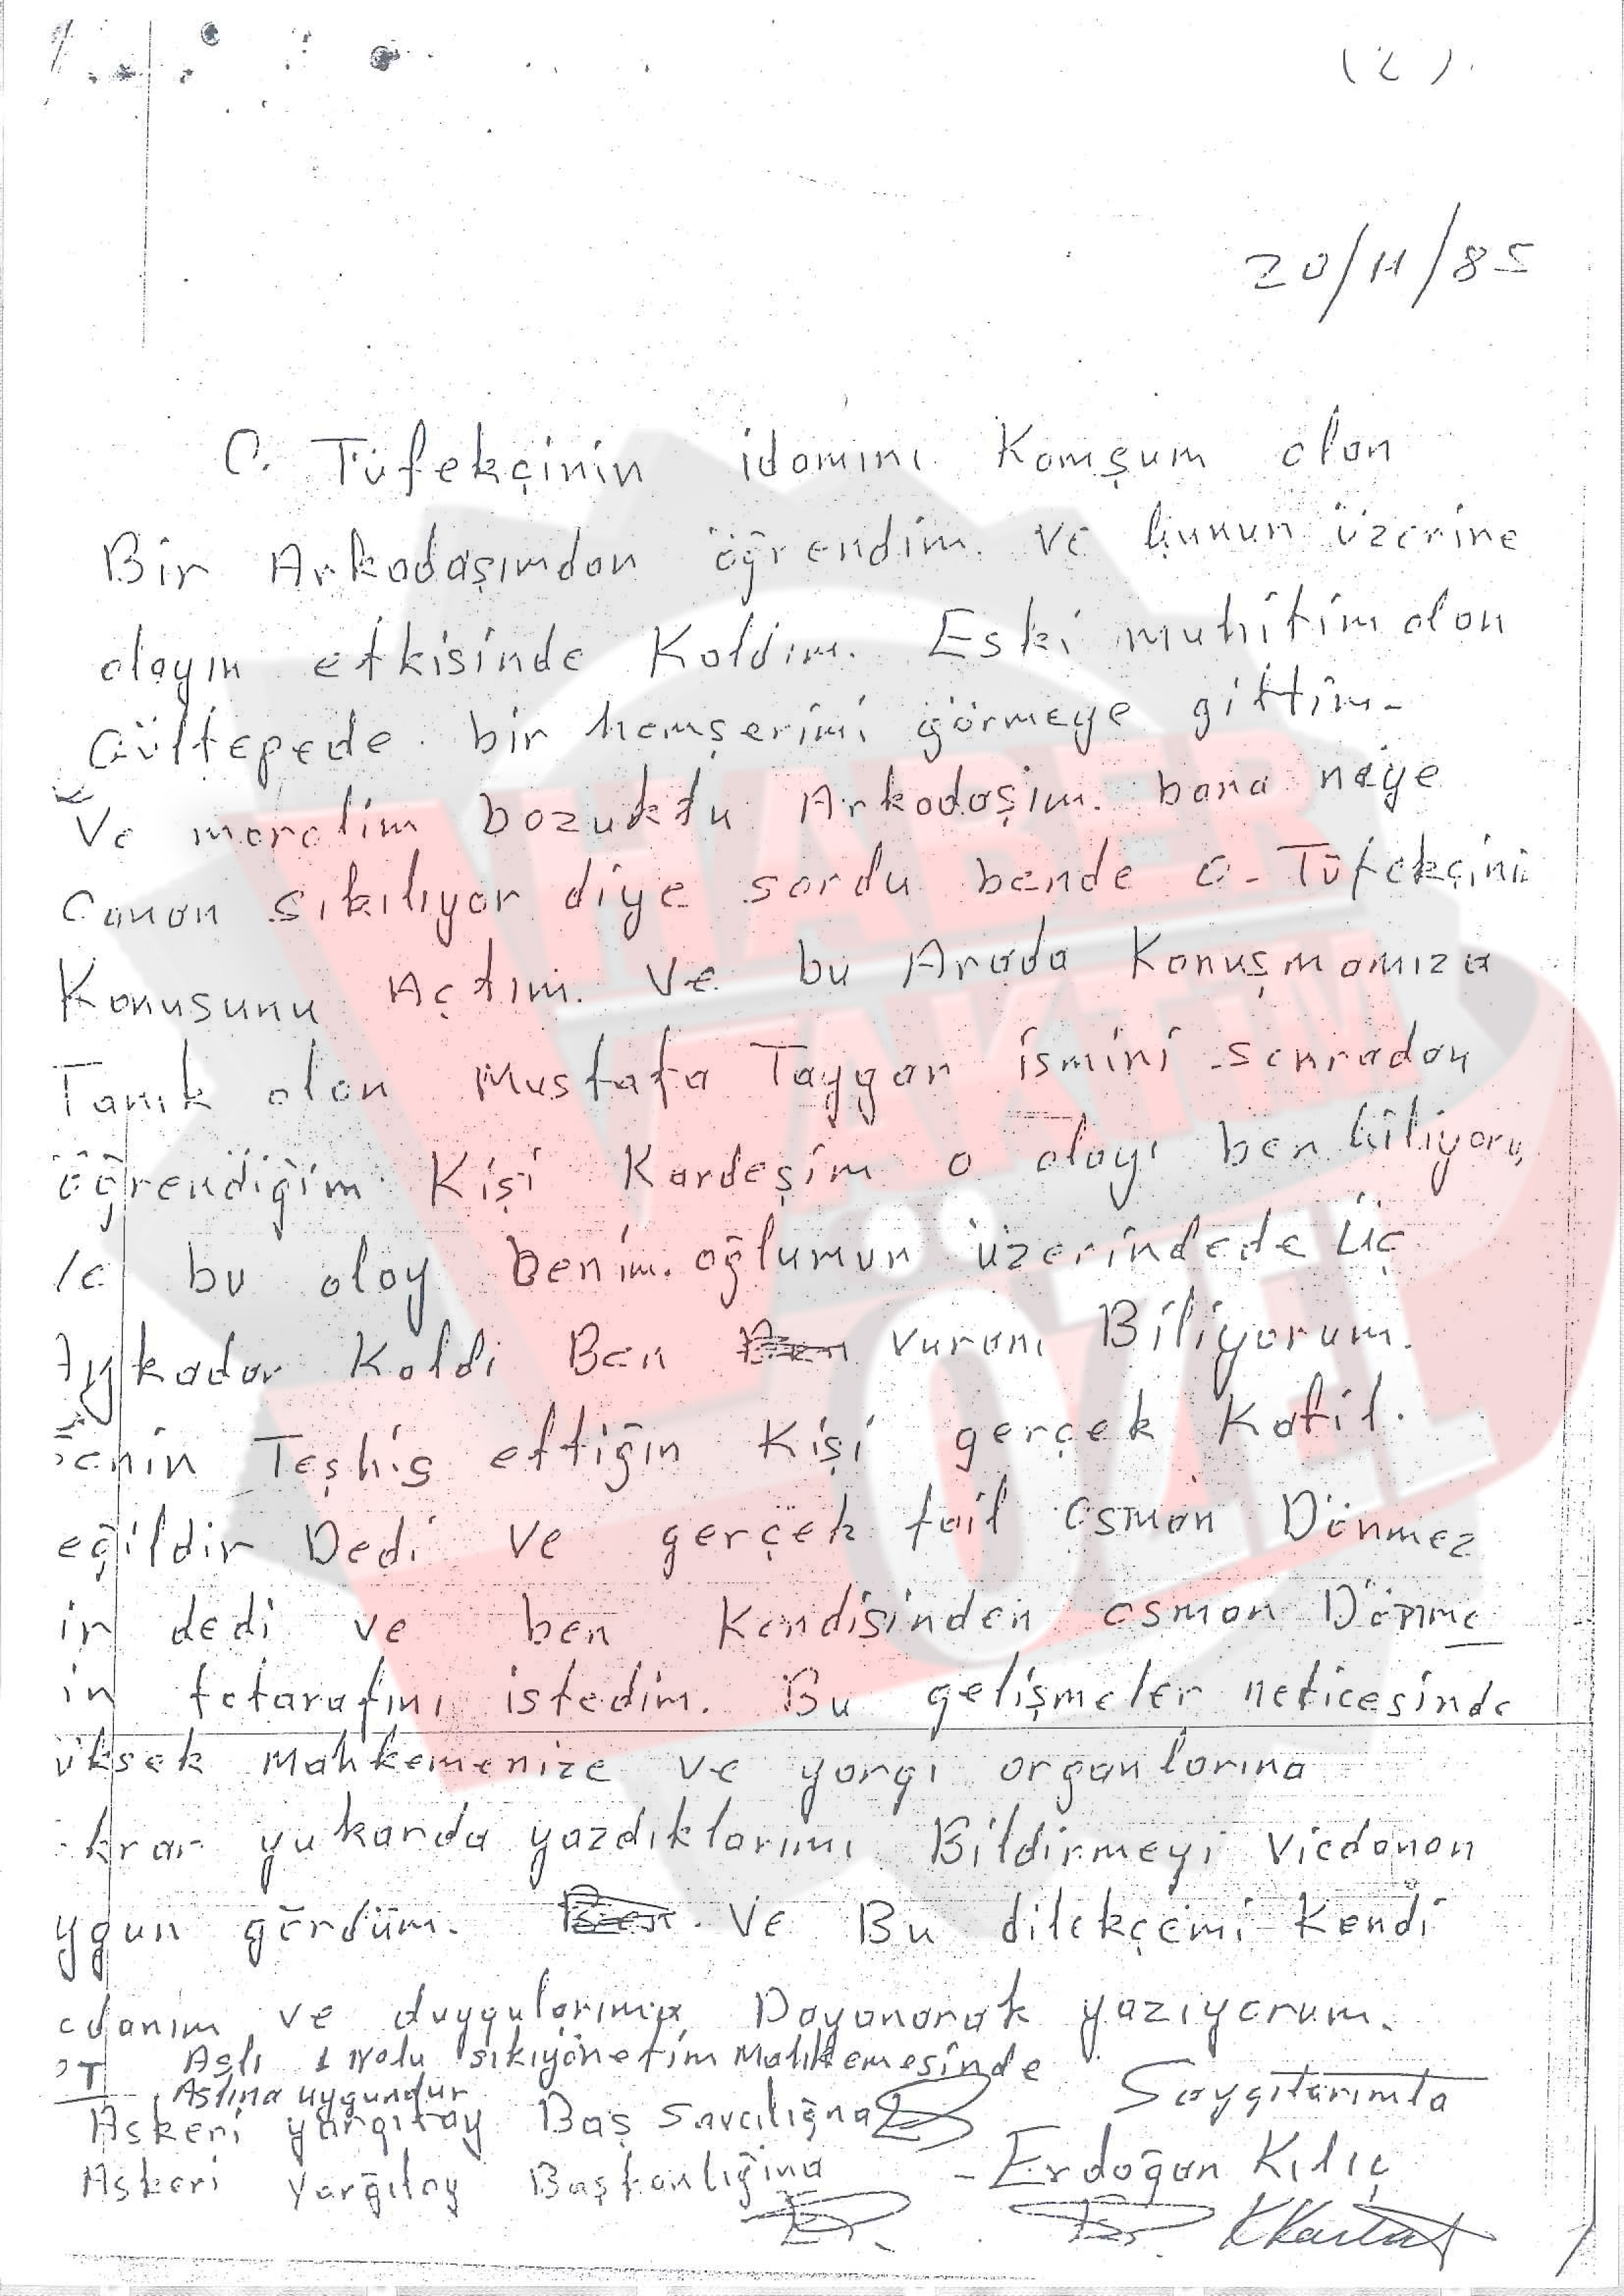 (2).
20/11/85
C. Tüfekçinin idamını Komşum olan
Bir Arkadaşımdan öğrendim. ve bunun üzerine
olayın etkisinde Kaldım. Eski muhitim olan
Gültepede bir hemşerimi görmeye gittim.
Ve moralim bozuktu Arkadaşim. bana neye
Canan sıkılıyor diye sordu bende C. Tüfekçini
Konusunu Açtım. Ve bu Arada Konuşmamıza
Tanık olan Mustafa Taygan ismini sonradan
öğrendiğim Kişi Kardeşim o olayı ben biliyoru
ve bu olay benim. oğlumun üzerindede Üç
Aykadar Kaldi Ben vuranı Biliyorum.
Senin Teşhis ettiğin Kişi gerçek Katil.
eğildir Dedi ve gerçek fail Osman Dönmez
ir dedi ve ben Kendisinden osman Dönme
in fotarafını istedim. Bu gelişmeler neticesinde
üksek Mahkemenize ve yargı organlarına
krar yukarda yazdıklarımı Bildirmeyi Vicdanan
ygun gördüm. Ve Bu dilekçemi Kendi
cdanım ve duygularıma Dayanarak yazıyorum.
OT Aslı 1 Nolu sıkıyönetim Mahkemesinde
Aslına uygundur
Saygılarımla
Askeri yargıtay Baş Savcılığna
Askeri Yargıtay Başkanlığına
- Erdoğan Kılıç
HABER
VAKTİM
ÖZEL